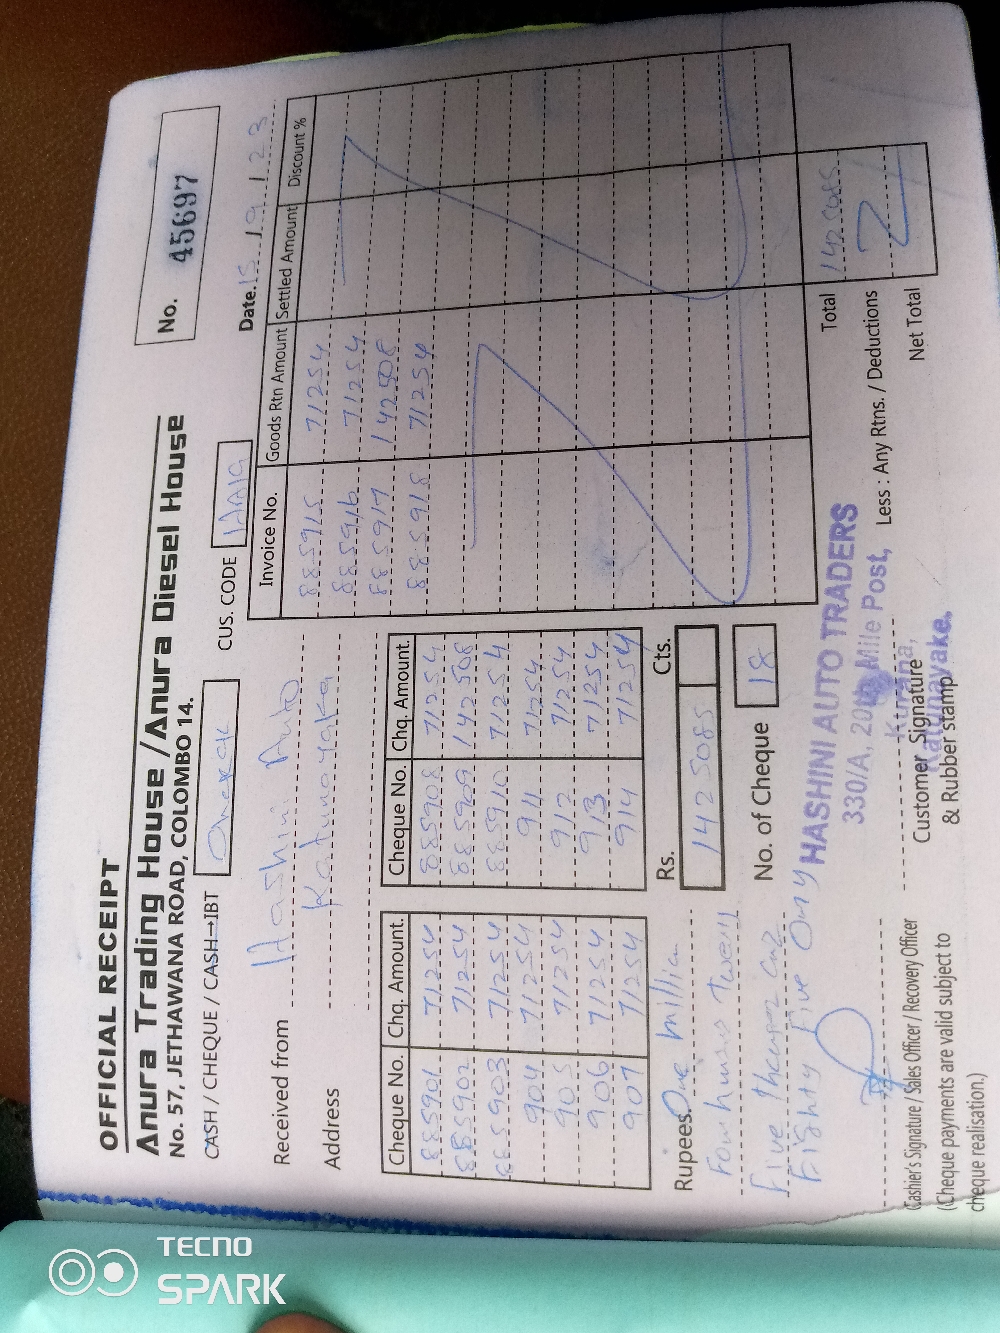 OFFICIAL RECEIPT
Anura Trading House / Anura Diesel House
No. 57, JETHAWANA ROAD, COLOMBO 14.
No. 45697
CASH / CHEQUE / CASH→IBT
CUS. CODE
Date.
Received from Hashini Auto
Address Katunayaka
Cheque No. Chq. Amount. Cheque No. Chq. Amount.
885901 71254 885908 71254
885902 71254 885909 142508
885903 71254 885910 71254
904 71254 911 71254
905 71254 912 71254
906 71254 913 71254
907 71254 914 71254
Invoice No. Goods Rtn Amount Settled Amount Discount %
885915 71254
885916 71254
885917 142508
885918 71254
Rupees. One million
Four Twenty
Five and
Eighty Five Only
Rs. Cts.
1425085
No. of Cheque 18
Total 1425085
Less : Any Rtns. / Deductions
Net Total
HASHINI AUTO TRADERS
330/A, 20th Mile Post,
Kurana,
Katunayake.
Cashier's Signature / Sales Officer / Recovery Officer
Customer Signature
& Rubber stamp
(Cheque payments are valid subject to
cheque realisation.)
TECNO
SPARK